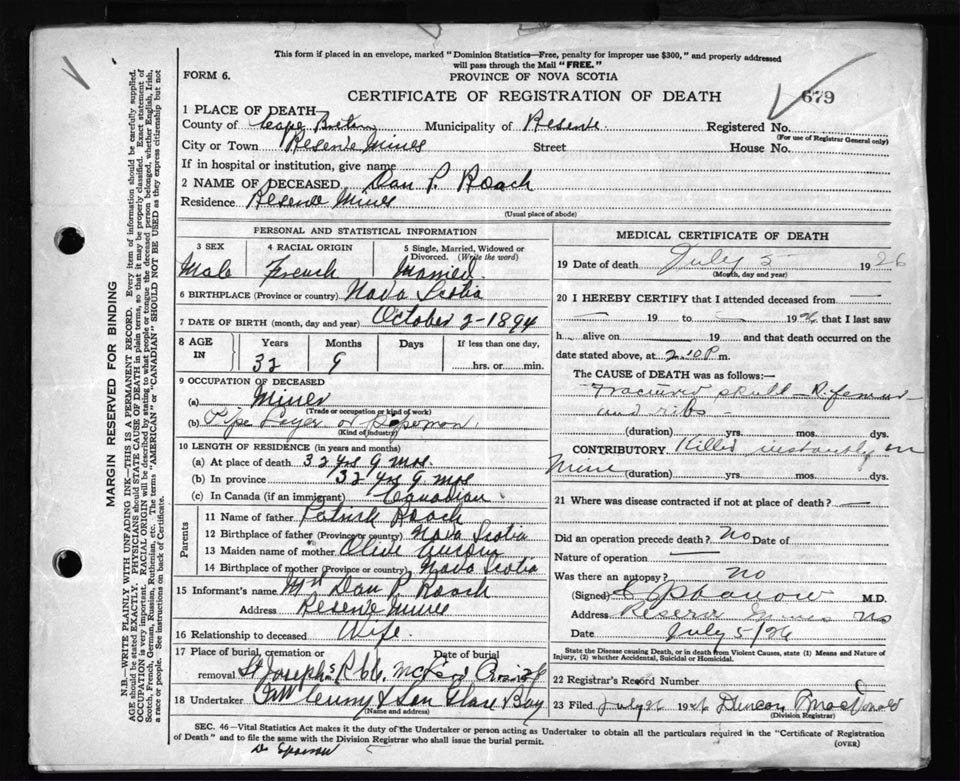 This form if placed in an envelope, marked "Dominion Statistics—Free, penalty for improper use $300," and properly addressed
will pass through the Mail "FREE."
FORM 6.
PROVINCE OF NOVA SCOTIA
CERTIFICATE OF REGISTRATION OF DEATH
679
1 PLACE OF DEATH—
County of Cape Breton Municipality of Reserve Registered No.
(For use of Registrar General only)
City or Town Reserve Mines Street House No.
If in hospital or institution, give name
2 NAME OF DECEASED Dan P. Roach
Residence Reserve Mines
(Usual place of abode)
MARGIN RESERVED FOR BINDING
N.B.—WRITE PLAINLY WITH UNFADING INK—THIS IS A PERMANENT RECORD. Every item of information should be carefully supplied.
AGE should be stated EXACTLY. PHYSICIANS should STATE CAUSE OF DEATH in plain terms, so that it may be properly classified. Exact statement of
OCCUPATION is very important. RACIAL ORIGIN will be described by stating to what people or tongue the deceased person belonged, whether English, Irish,
Scotch, French, German, Russian, Ruthenian, etc. The terms "AMERICAN" or "CANADIAN" SHOULD NOT BE USED as they express citizenship but not
a race or people. See instructions on back of Certificate.
PERSONAL AND STATISTICAL INFORMATION
3 SEX 4 RACIAL ORIGIN 5 Single, Married, Widowed or
Divorced. (Write the word)
Male French Married
6 BIRTHPLACE (Province or country) Nova Scotia
7 DATE OF BIRTH (month, day and year) October 2-1894
8 AGE IN Years Months Days If less than one day,
32 9 hrs. or min.
9 OCCUPATION OF DECEASED
(a) Miner
(Trade or occupation or kind of work)
(b) Pipe Layer or
(Kind of industry)
10 LENGTH OF RESIDENCE (in years and months)
(a) At place of death 32 yrs 9 mos.
(b) In province 32 yrs 9 mos
(c) In Canada (if an immigrant) Canadian
Parents
11 Name of father Patrick Roach
12 Birthplace of father (Province or country) Nova Scotia
13 Maiden name of mother Olive
14 Birthplace of mother (Province or country) Nova Scotia
15 Informant's name Mrs Dan P. Roach
Address Reserve Mines
16 Relationship to deceased Wife
17 Place of burial, cremation or removal Date of burial
St Josephs
18 Undertaker & Son Glace Bay
(Name and address)
MEDICAL CERTIFICATE OF DEATH
19 Date of death July 5 1926
(Month, day and year)
20 I HEREBY CERTIFY that I attended deceased from —
— 19 to — 1926 that I last saw
h alive on 19 — and that death occurred on the
date stated above, at 2.10 P m.
The CAUSE OF DEATH was as follows:
Fractured skull — R. femur —
and ribs —
(duration) yrs. mos. dys.
CONTRIBUTORY Killed instantly in
Mine (duration) yrs. mos. dys.
21 Where was disease contracted if not at place of death? —
Did an operation precede death? No Date of
Nature of operation —
Was there an autopsy? no
(Signed) M.D.
Address Reserve Mines NS
Date July 5/26
State the Disease causing Death, or in death from Violent Causes, state (1) Means and Nature of
Injury, (2) whether Accidental, Suicidal or Homicidal.
22 Registrar's Record Number
23 Filed July 26 1926 Duncan MacDonald
(Division Registrar)
SEC. 46—Vital Statistics Act makes it the duty of the Undertaker or person acting as Undertaker to obtain all the particulars required in the "Certificate of Registration
of Death" and to file the same with the Division Registrar who shall issue the burial permit.
(OVER)